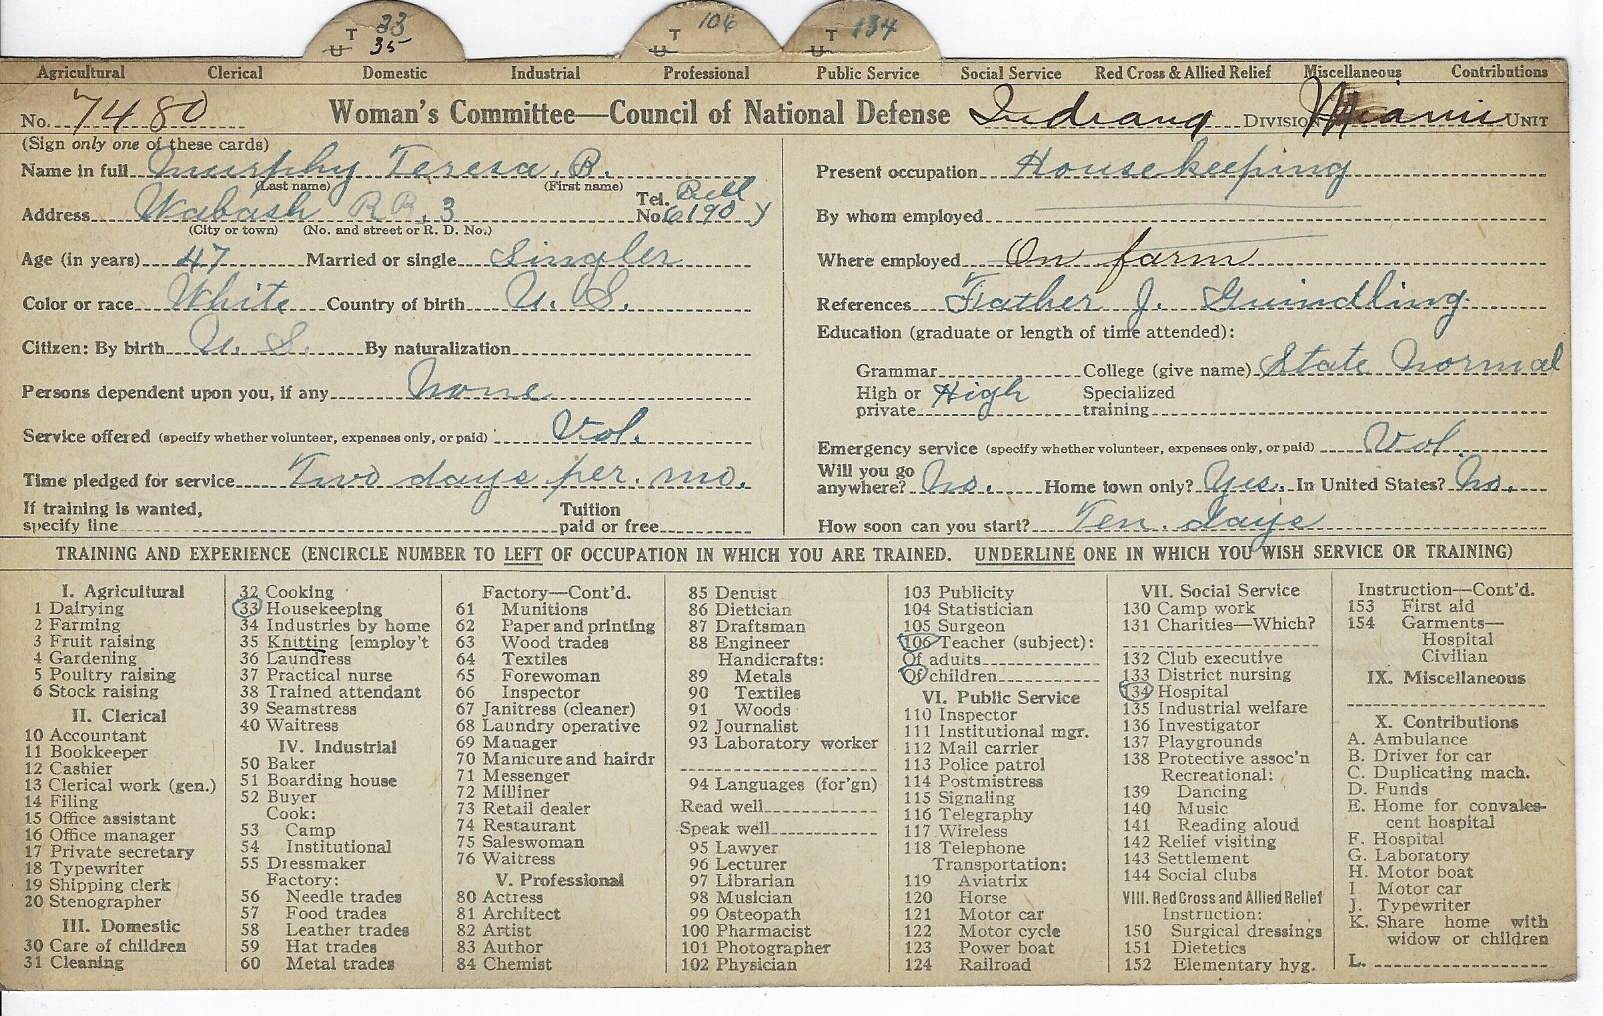 T 33
U 35
T 106
U
T 134
U
Agricultural Clerical Domestic Industrial Professional Public Service Social Service Red Cross & Allied Relief Miscellaneous Contributions
No. 7480 Woman's Committee—Council of National Defense Indiana DIVISION Miami UNIT
(Sign only one of these cards)
Name in full Murphy Teresa. B.
(Last name) (First name)
Address Wabash R R. 3 Tel. No. Bell 6190 Y
(City or town) (No. and street or R. D. No.)
Age (in years) 47 Married or single Singler
Color or race White Country of birth U. S.
Citizen: By birth U. S. By naturalization
Persons dependent upon you, if any None
Service offered (specify whether volunteer, expenses only, or paid) Vol.
Time pledged for service Two days per. mo.
If training is wanted, specify line Tuition paid or free
Present occupation Housekeeping
By whom employed
Where employed On farm
References Father J. Guindling
Education (graduate or length of time attended):
Grammar College (give name) State Normal
High or private High Specialized training
Emergency service (specify whether volunteer, expenses only, or paid) Vol.
Will you go anywhere? No. Home town only? Yes. In United States? No.
How soon can you start? Ten. days
TRAINING AND EXPERIENCE (ENCIRCLE NUMBER TO LEFT OF OCCUPATION IN WHICH YOU ARE TRAINED. UNDERLINE ONE IN WHICH YOU WISH SERVICE OR TRAINING)
I. Agricultural
1 Dairying
2 Farming
3 Fruit raising
4 Gardening
5 Poultry raising
6 Stock raising
II. Clerical
10 Accountant
11 Bookkeeper
12 Cashier
13 Clerical work (gen.)
14 Filing
15 Office assistant
16 Office manager
17 Private secretary
18 Typewriter
19 Shipping clerk
20 Stenographer
III. Domestic
30 Care of children
31 Cleaning
32 Cooking
33 Housekeeping
34 Industries by home
35 Knitting [employ't
36 Laundress
37 Practical nurse
38 Trained attendant
39 Seamstress
40 Waitress
IV. Industrial
50 Baker
51 Boarding house
52 Buyer
Cook:
53 Camp
54 Institutional
55 Dressmaker
Factory:
56 Needle trades
57 Food trades
58 Leather trades
59 Hat trades
60 Metal trades
Factory—Cont'd.
61 Munitions
62 Paper and printing
63 Wood trades
64 Textiles
65 Forewoman
66 Inspector
67 Janitress (cleaner)
68 Laundry operative
69 Manager
70 Manicure and hairdr
71 Messenger
72 Milliner
73 Retail dealer
74 Restaurant
75 Saleswoman
76 Waitress
V. Professional
80 Actress
81 Architect
82 Artist
83 Author
84 Chemist
85 Dentist
86 Dietician
87 Draftsman
88 Engineer
Handicrafts:
89 Metals
90 Textiles
91 Woods
92 Journalist
93 Laboratory worker
94 Languages (for'gn)
Read well
Speak well
95 Lawyer
96 Lecturer
97 Librarian
98 Musician
99 Osteopath
100 Pharmacist
101 Photographer
102 Physician
103 Publicity
104 Statistician
105 Surgeon
106 Teacher (subject):
Of adults
Of children
VI. Public Service
110 Inspector
111 Institutional mgr.
112 Mail carrier
113 Police patrol
114 Postmistress
115 Signaling
116 Telegraphy
117 Wireless
118 Telephone
Transportation:
119 Aviatrix
120 Horse
121 Motor car
122 Motor cycle
123 Power boat
124 Railroad
VII. Social Service
130 Camp work
131 Charities—Which?
132 Club executive
133 District nursing
134 Hospital
135 Industrial welfare
136 Investigator
137 Playgrounds
138 Protective assoc'n
Recreational:
139 Dancing
140 Music
141 Reading aloud
142 Relief visiting
143 Settlement
144 Social clubs
VIII. Red Cross and Allied Relief
Instruction:
150 Surgical dressings
151 Dietetics
152 Elementary hyg.
Instruction—Cont'd.
153 First aid
154 Garments—
Hospital
Civilian
IX. Miscellaneous
X. Contributions
A. Ambulance
B. Driver for car
C. Duplicating mach.
D. Funds
E. Home for convales-
cent hospital
F. Hospital
G. Laboratory
H. Motor boat
I Motor car
J. Typewriter
K. Share home with
widow or children
L.